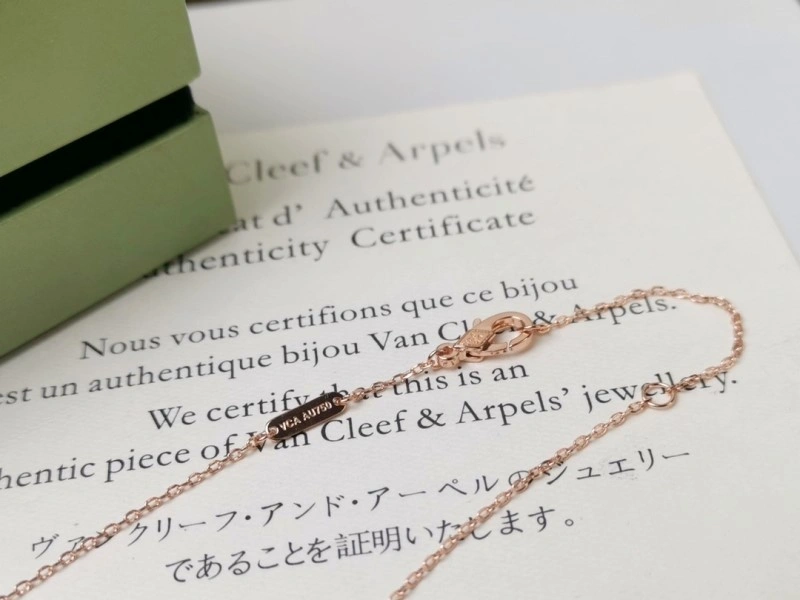 Cleef & Arpels
d' Authenticité
Authenticity Certificate
Nous vous certifions que ce bijou
est un authentique bijou Van Cleef & Arpels.
We certify that this is an
authentic piece of Van Cleef & Arpels' jewellery.
VCA AU750
ヴァン クリーフ・アンド・アーペルのジュエリー
であることを証明いたします。